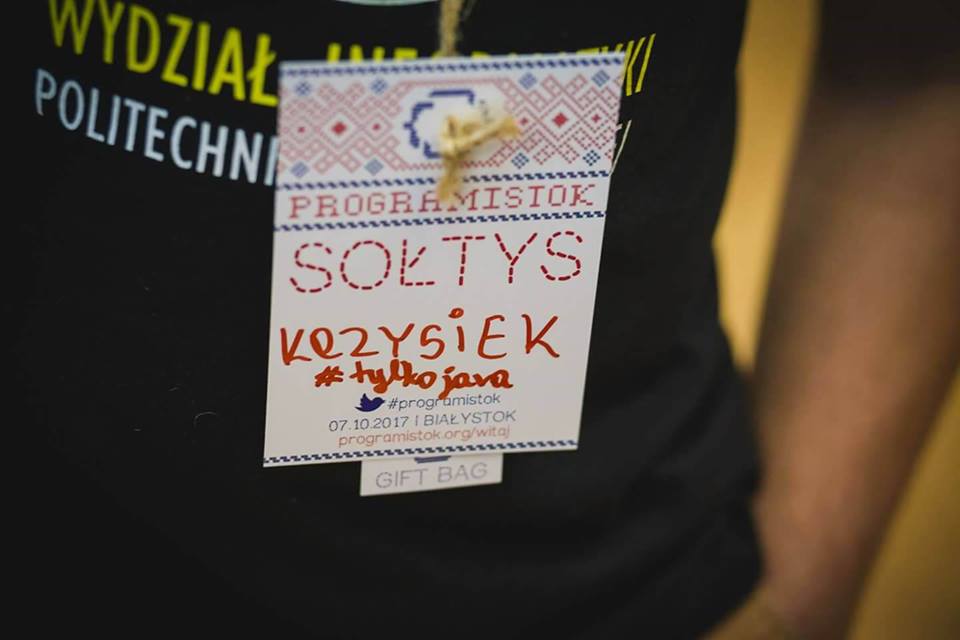 WYDZIAŁ INFORMATYKI
POLITECHNI
PROGRAMISTOK
SOŁTYS
KRZYSIEK
#tylkojava
#programistok
07.10.2017 | BIAŁYSTOK
programistok.org/witaj
GIFT BAG